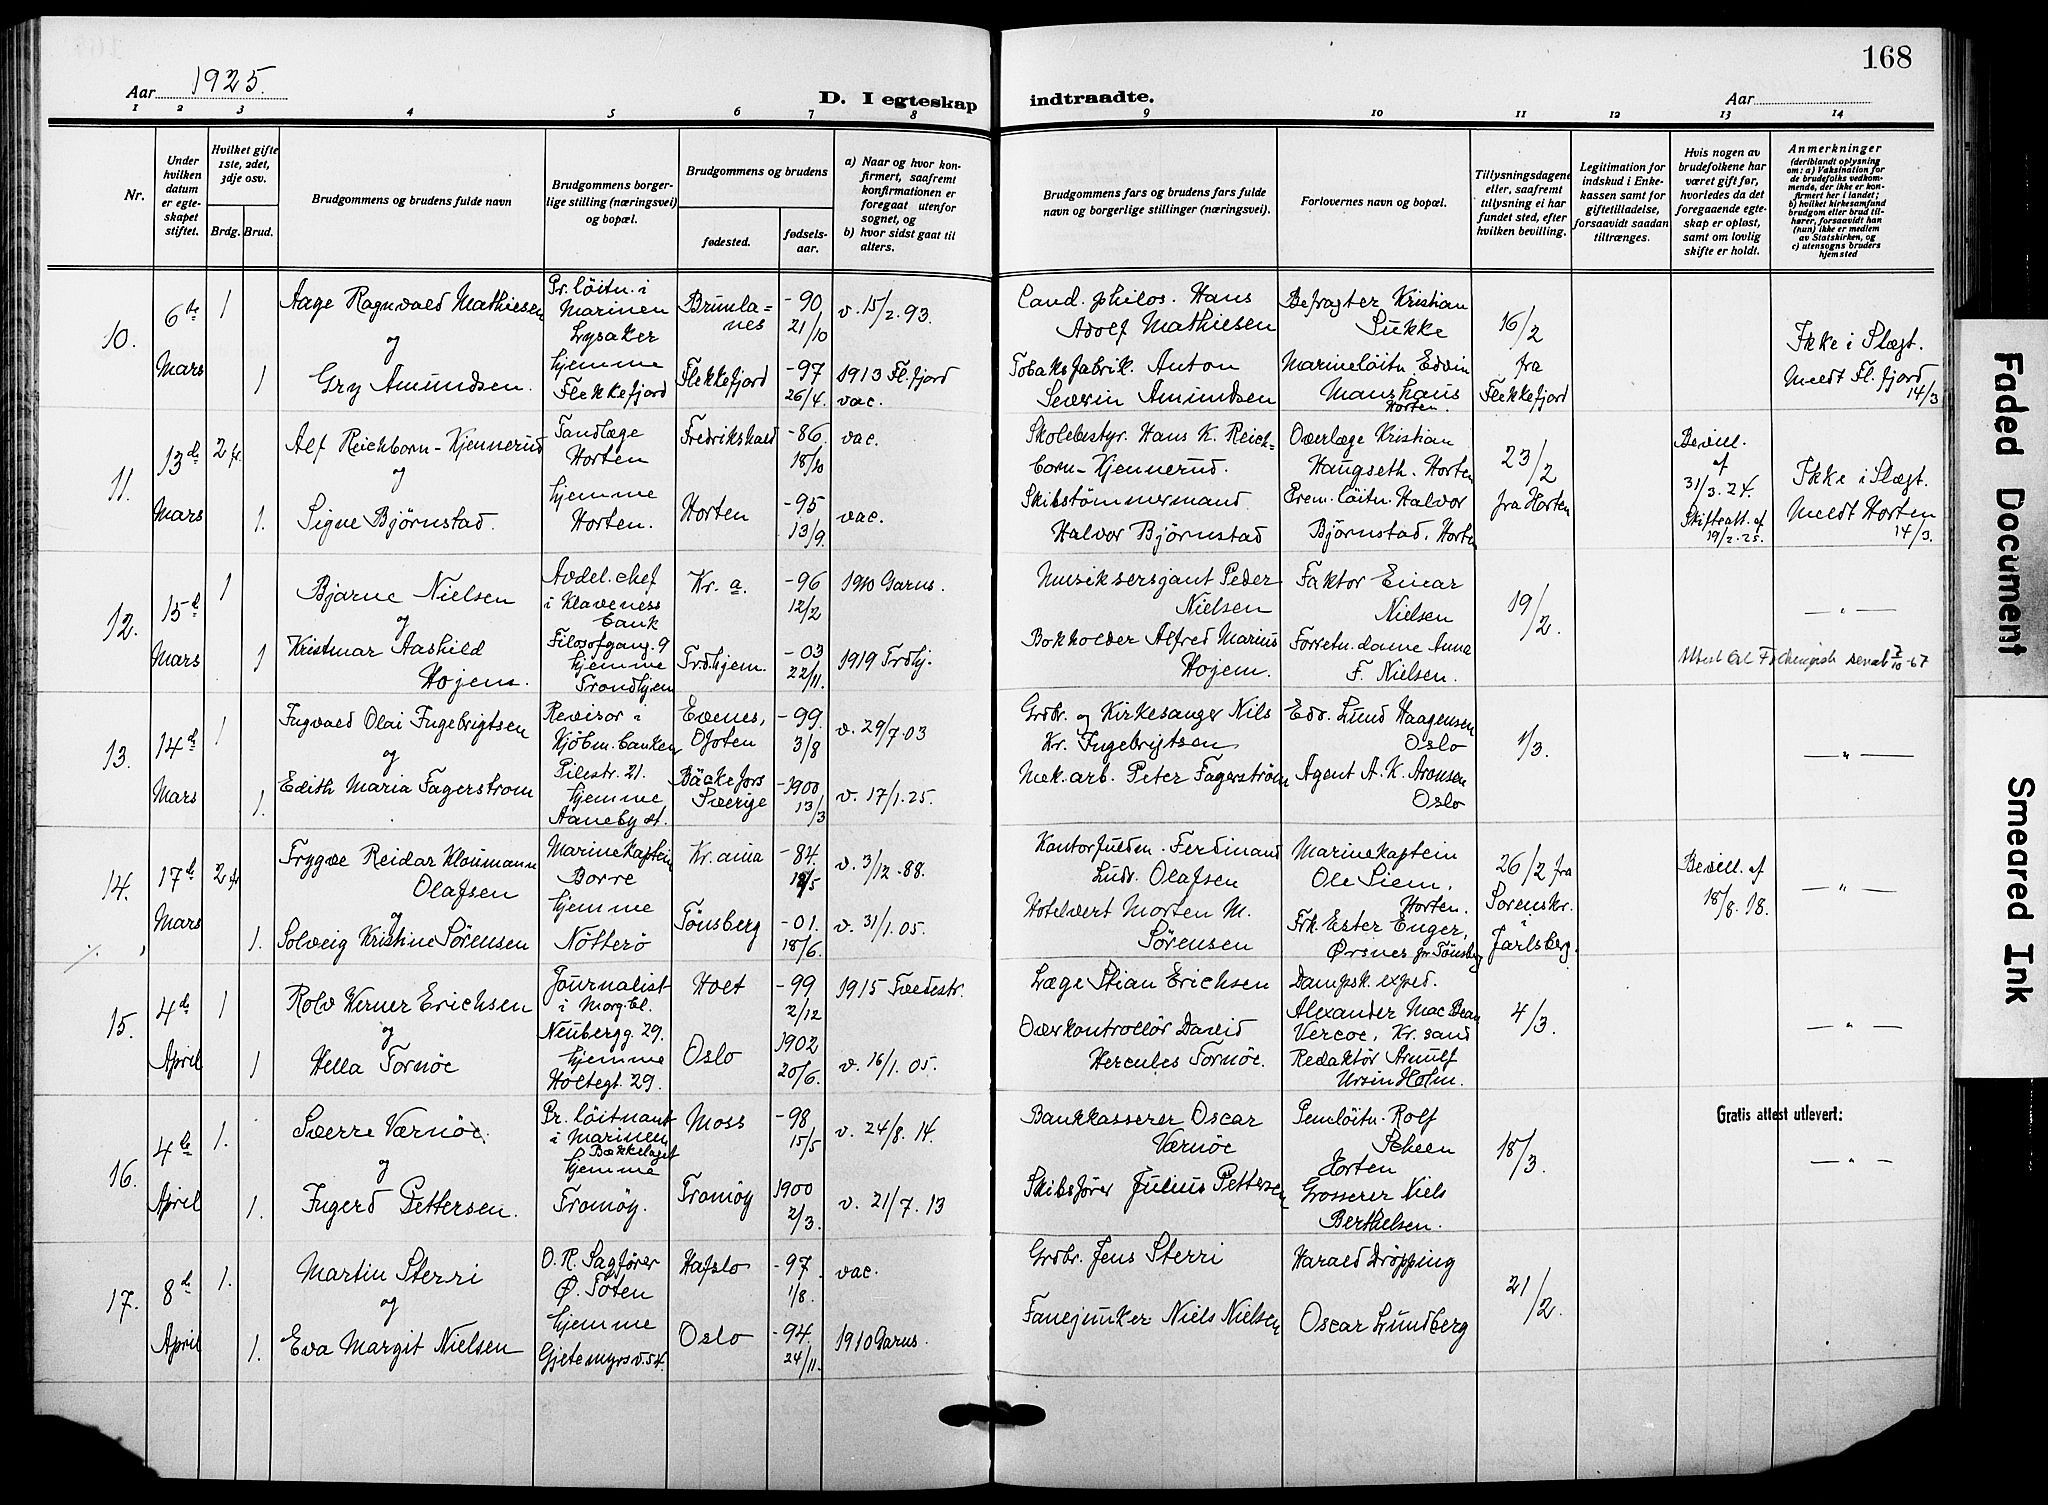 168
Aar 1925.
D. I egteskap indtraadte.
Aar
1 2 3 4 5 6 7 8 9 10 11 12 13 14
Nr.
Under hvilken datum er egteskapet stiftet.
Hvilket gifte 1ste, 2det, 3dje osv.
Brdg. Brud.
Brudgommens og brudens fulde navn
Brudgommens borgerlige stilling (næringsvei) og bopæl.
Brudgommens og brudens
fødested.
fødselsaar.
a) Naar og hvor konfirmert, saafremt konfirmationen er foregaat utenfor sognet, og
b) hvor sidst gaat til alters.
Brudgommens fars og brudens fars fulde navn og borgerlige stillinger (næringsvei).
Forlovernes navn og bopæl.
Tillysningsdagene eller, saafremt tillysning ei har fundet sted, efter hvilken bevilling.
Legitimation for indskud i Enkekassen samt for giftetilladelse, forsaavidt saadan tiltrænges.
Hvis nogen av brudefolkene har været gift før, hvorledes da det foregaaende egteskap er opløst, samt om lovlig skifte er holdt.
Anmerkninger
(deriblandt oplysning om: a) Vaksination for de brudefolks vedkommende, der ikke er konfirmert her i landet;
b) hvilket kirkesamfund brudgom eller brud tilhører, forsaavidt han (hun) ikke er medlem av Statskirken, og
c) utensogns bruders hjemsted
10. 6te Mars
1
Aage Ragnvald Mathiesen
og
Pr. løitn. i Marinen Lysaker
Brunlanes
-90 21/10
v. 15/2. 93.
Cand. philos. Hans Adolf Mathiesen
Befragter Kristian Sukke
16/2 fra Flekkefjord
Ikke i Slegt.
Meldt Fl.fjord 14/3
1
Gry Amundsen.
hjemme Flekkefjord
Flekkefjord
-97 26/4.
1913 Fl. fjord vac.
Tobaksfabrik. Anton Severin Amundsen
Marineløitn. Edvin Manshaus Horten.
11. 13de Mars
2 fr.
Alf Reichborn-Kjennerud
og
Tandlæge Horten
Fredrikshald
-86. 18/10
vac.
Skolebestyr. Hans K. Reichborn-Kjennerud.
Overlæge Kristian Haugseth. Horten
23/2 fra Horten
Bevill. af 31/3. 24.
Skifteatt. af 19/2. 25.
Ikke i Slegt.
Meldt Horten 14/3.
1.
Signe Bjørnstad.
hjemme Horten.
Horten
-95 13/9.
vac.
Skibstømmermand Halvor Bjørnstad
Prem. løitn. Halvor Bjørnstad. Horten
12. 15de Mars
1
Bjarne Nielsen
og
Avdel. chef i Klaveness bank Filosofgang. 9
Kr. a.
-96 12/2
1910 Garns.
Musiksersjant Peder Nielsen
Faktor Einar Nielsen
19/2.
— " —
1
Kristmar Aashild Hojem.
hjemme Trondhjem
Trdhjem.
-03 22/11.
1919 Trdhj.
Bokholder Alfred Marius Hojem.
Forretn. dame Anna F. Nielsen.
13. 14de Mars
1
Ingvald Olai Ingebrigtsen
og
Revisor i Kjøbm. banken Pilestr. 21.
Evenes, Ofoten
-99. 3/8
v. 29/7. 03
Grdbr. og Kirkesanger Nils Kr. Ingebrigtsen
Edv. Lund Haagensen Oslo
1/3.
— " —
1.
Edith Maria Fagerstrom
hjemme Aaneby st.
Bäckefors Sverige
-1900 13/3
v. 17/1. 25.
Mek. arb. Peter Fagerstrøm
Agent A. K. Aronsen Oslo
14. 17de Mars
2 fr
Trygve Reidar Kloumann Olafsen
og
Marinekaptein Borre
Kr. ania
-84. 18/5
v. 3/12. 88.
Kontorfuldm. Ferdinand Ludv. Olafsen
Marinekaptein Ole Siem, Horten.
26/2 fra Sorenskr. i Jarlsberg.
Bevill. af 18/8. 18.
— " —
1.
Solveig Kristine Sørensen
hjemme Nötterö
Tønsberg
-01. 18/6.
v. 31/1. 05.
Hotelvert Morten M. Sørensen
Frk. Ester Enger, Ørsnes pr Tønsberg
15. 4de April
1
Rolv Werner Erichsen
og
Journalist i Morg.bl. Neuberg g. 29.
Holt
-99 2/12
1915 Tvedestr.
Læge Stian Erichsen
Dampsk. exped. Alexander Mac Bean Vercoe, Kr. sand
4/3.
— " —
1
Hella Tornöe
hjemme Holtegt. 29.
Oslo
1902 20/6.
v. 16/1. 05.
Overkontrollør David Hercules Tornöe.
Redaktør Arnulf Ursin Holm.
16. 4de April
1.
Sverre Værnöe.
og
Pr. löitnant i Marinen Bækkelaget
Moss
-98 15/5
v. 24/8. 14.
Bankkasserer Oscar Værnöe
Pemløitn. Rolf Scheen Horten
18/3.
Gratis attest utlevert:
— " —
1.
Ingerd Pettersen.
hjemme Tromöy.
Tromöy
1900 2/3.
v. 21/7. 13
Skibsfører Julius Pettersen
Grosserer Niels Berthelsen.
17. 8de April
1.
Martin Sterri
og
O. R. Sagfører Ø. Toten
Hafslo
-97. 1/8.
vac.
Grdbr. Jens Sterri
Harald Dröpping
21/2.
1.
Eva Margit Nielsen
hjemme Gjetemyrsv. 54.
Oslo
-94. 24/11.
1910 Garns.
Fanejunker Niels Nielsen
Oscar Lundberg
Faded Document
Smeared Ink